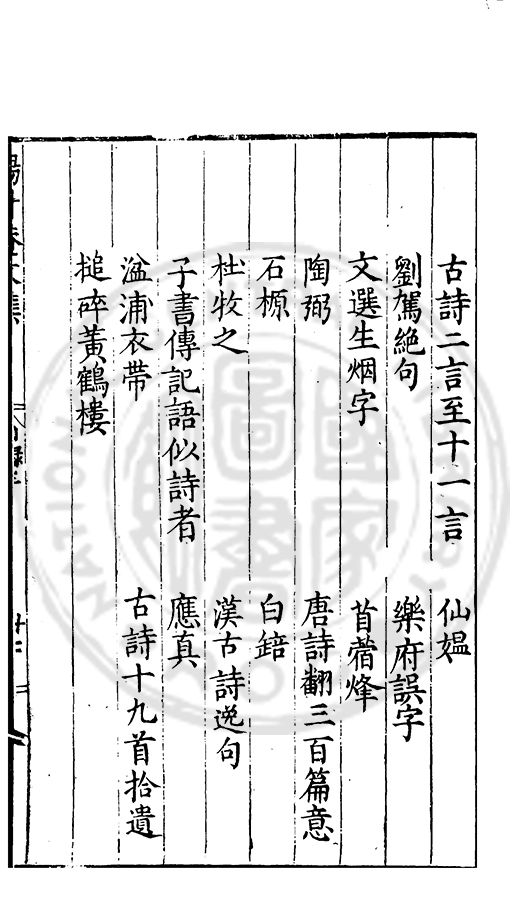 古詩二言至十一言　仙媪
劉駕絶句　樂府誤字
文選生烟字　苜蓿烽
陶弼　唐詩翻三百篇意
石榞　白䤗
杜牧之　漢古詩逸句
子書傳記語似詩者　應真
湓浦衣帶　古詩十九首拾遺
搥碎黃鶴樓